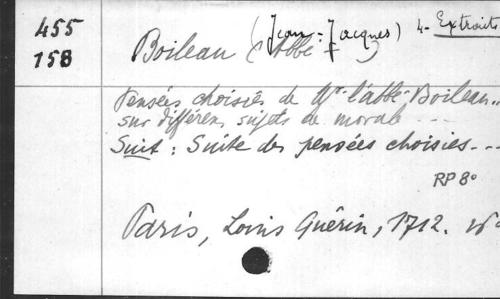 455
158
Boileau (Abbé) (Jean-Jacques) 4- Extraits
Pensées choisies de Mr l'abbé Boileau...
sur différens sujets de morale ---
Suit : Suite des pensées choisies ---
RP 8°
Paris, Louis Guérin, 1712.